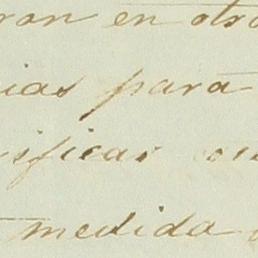 ron en otro
ias para
sificar
medida